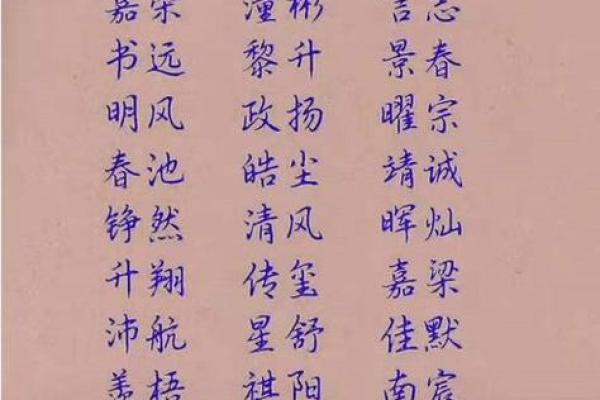 嘉荣 潼彬 志
书远 黎升 景春
明风 政扬 曜宗
春池 皓尘 靖诚
铮然 清风 晖灿
升翔 传玺 嘉梁
沛航 星舒 佳默
梧 祺阳 南宸